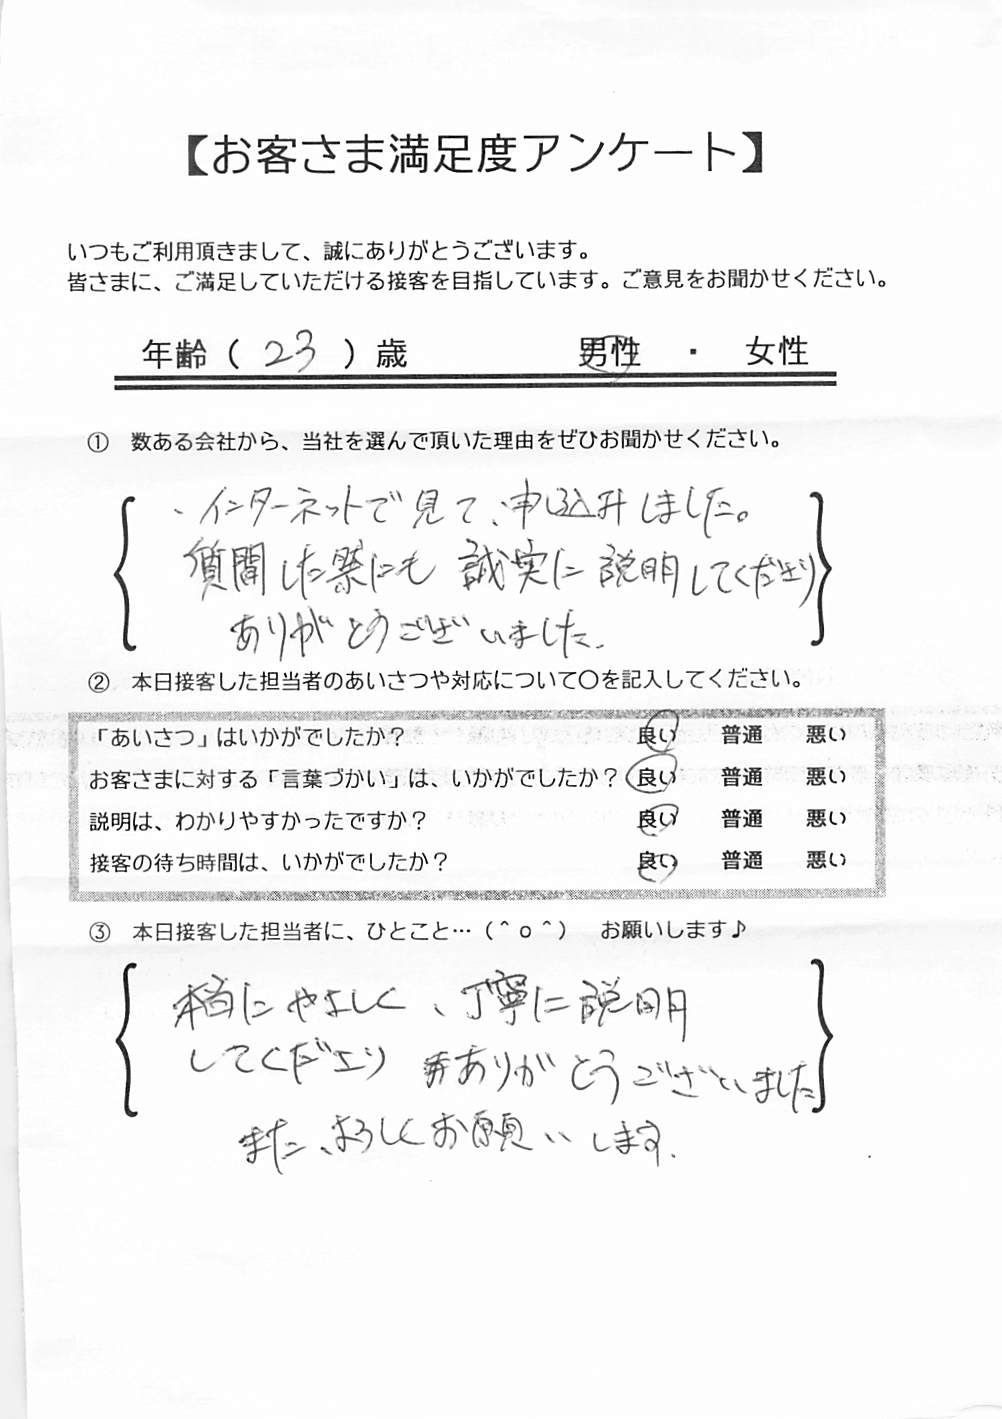 【お客さま満足度アンケート】
いつもご利用頂きまして、誠にありがとうございます。
皆さまに、ご満足していただける接客を目指しています。ご意見をお聞かせください。
年齢（ 23 ）歳　男性 ・ 女性
① 数ある会社から、当社を選んで頂いた理由をぜひお聞かせください。
、インターネットで見て、申し込みしました。
質問した際にも 誠実に説明してくださり
ありがとうございました.
② 本日接客した担当者のあいさつや対応について〇を記入してください。
「あいさつ」はいかがでしたか？ 良い 普通 悪い
お客さまに対する「言葉づかい」は、いかがでしたか？ 良い 普通 悪い
説明は、わかりやすかったですか？ 良い 普通 悪い
接客の待ち時間は、いかがでしたか？ 良い 普通 悪い
③ 本日接客した担当者に、ひとこと…（＾ｏ＾） お願いします♪
本当にやさしく、丁寧に説明
してくださり ありがとうございました
また、よろしくお願いします.